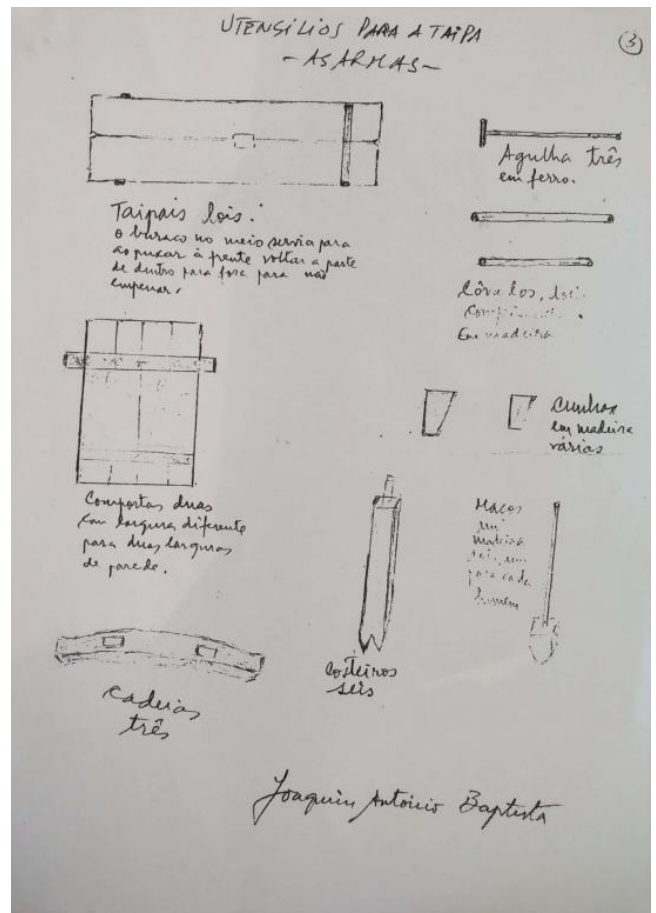 UTENSÍLIOS PARA A TAIPA
- AS ARMAS -
3
Taipais dois.
O buraco no meio servia para
ao puxar à frente voltar a parte
de dentro para fora para não
empenar.
Agulha três
em ferro.
Côvelos, dois
Em madeira
Cunhas
em madeira
várias
Comportas duas
com largura diferente
para duas larguras
de parede.
Maços
em
madeira
dois, um
para cada
homem
Costeiros
seis
Cadeias
três
Joaquim António Baptista